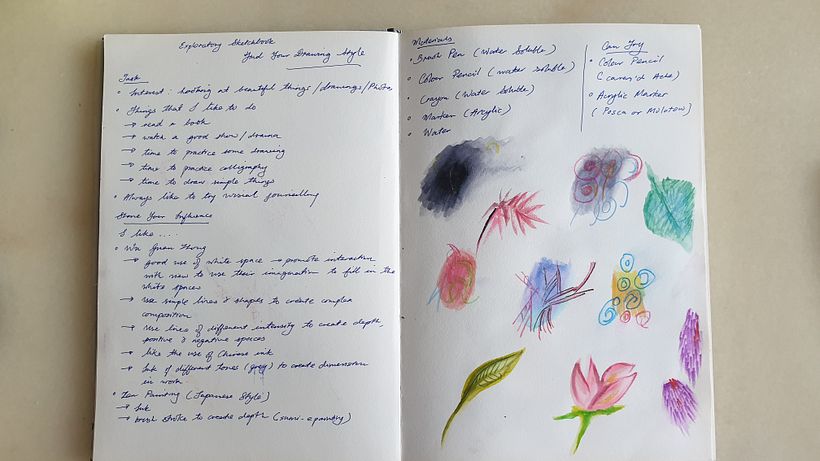 Exploratory Sketchbook
Find Your Drawing Style
Task
• Interest: looking at beautiful things/drawings/Photos
• Things that I like to do
→ read a book
→ watch a good show/drama
→ time to practice some drawing
→ time to practice calligraphy
→ time to draw simple things
• Always like to try visual journalling
Your Influence
I like ....
• Wu Guan Zhong
→ good use of white space → promote interaction
with view to use their imagination to fill in the
white spaces
→ Use simple lines & shapes to create complex
composition
→ Use lines of different intensity to create depth,
positive & negative spaces
→ like the use of Chinese ink
→ Ink of different tones (grey) to create dimension
in work
• Zen Painting (Japanese Style)
→ Ink
→ brush stroke to create depth (sumi-e painting)
Materials
• Brush Pen (Water Soluble)
• Colour Pencil (water soluble)
• Crayon (Water Soluble)
• Marker (Acrylic)
• Water
Can Try
• Colour Pencil
(Caran d'Ache)
• Acrylic Marker
(Posca or Molotow)